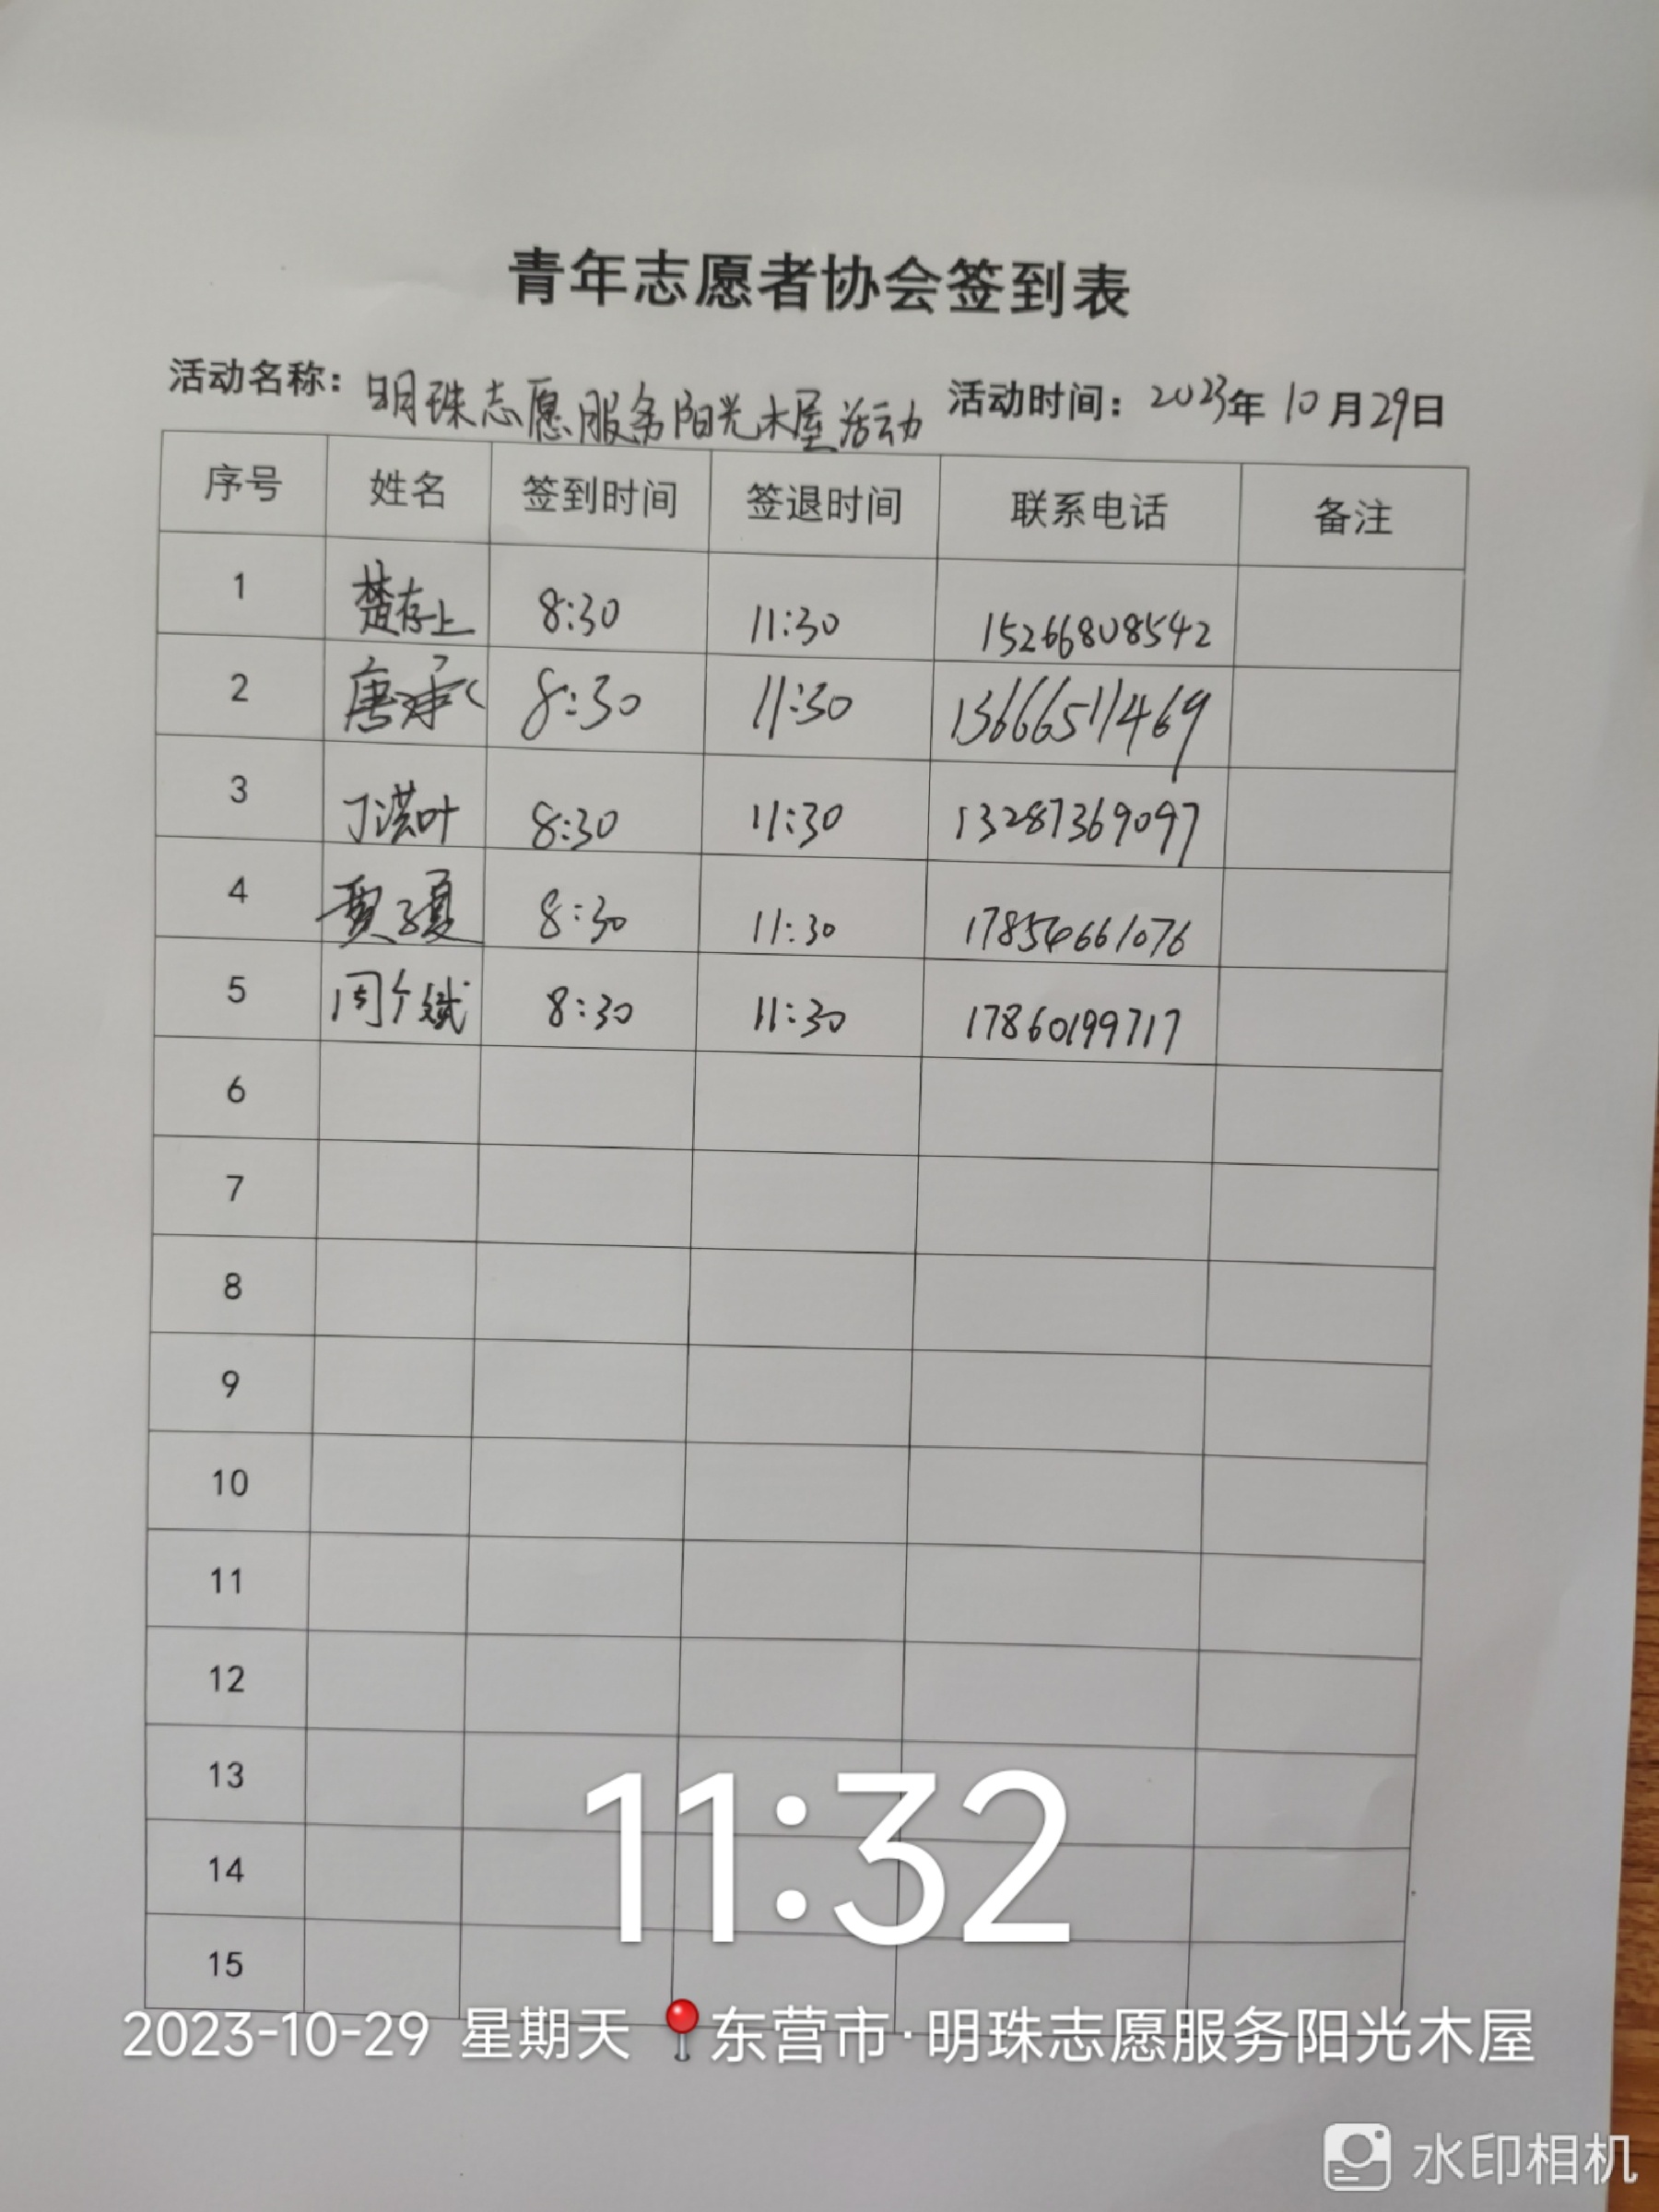 青年志愿者协会签到表
活动名称：明珠志愿服务阳光木屋活动 活动时间：2023年10月29日
序号 姓名 签到时间 签退时间 联系电话 备注
1 楚存上 8:30 11:30 15266808542
2 唐承 8:30 11:30 13666511469
3 丁洪叶 8:30 11:30 13287369097
4 贾子夏 8:30 11:30 17854661076
5 周 8:30 11:30 17860199717
6
7
8
9
10
11
12
13
14
15
11:32
2023-10-29 星期天 东营市·明珠志愿服务阳光木屋
水印相机